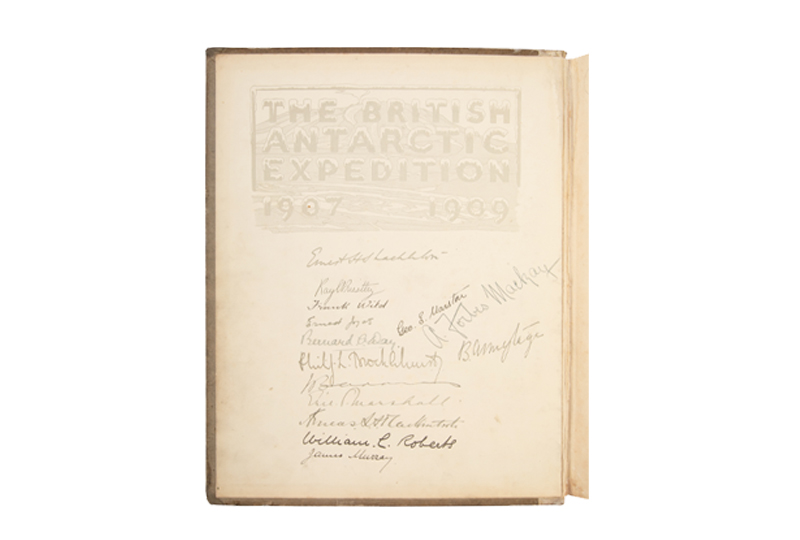 THE BRITISH
ANTARCTIC
EXPEDITION
1907 1909
Ernest H Shackleton
Ray Priestley
Frank Wild
Ernest Joyce
Geo. S. Marston
A Forbes Mackay
Bernard C Day
B Armytage
Philip L. Brocklehurst
Eric Marshall
Aeneas L A Mackintosh
William. C. Roberts
James Murray